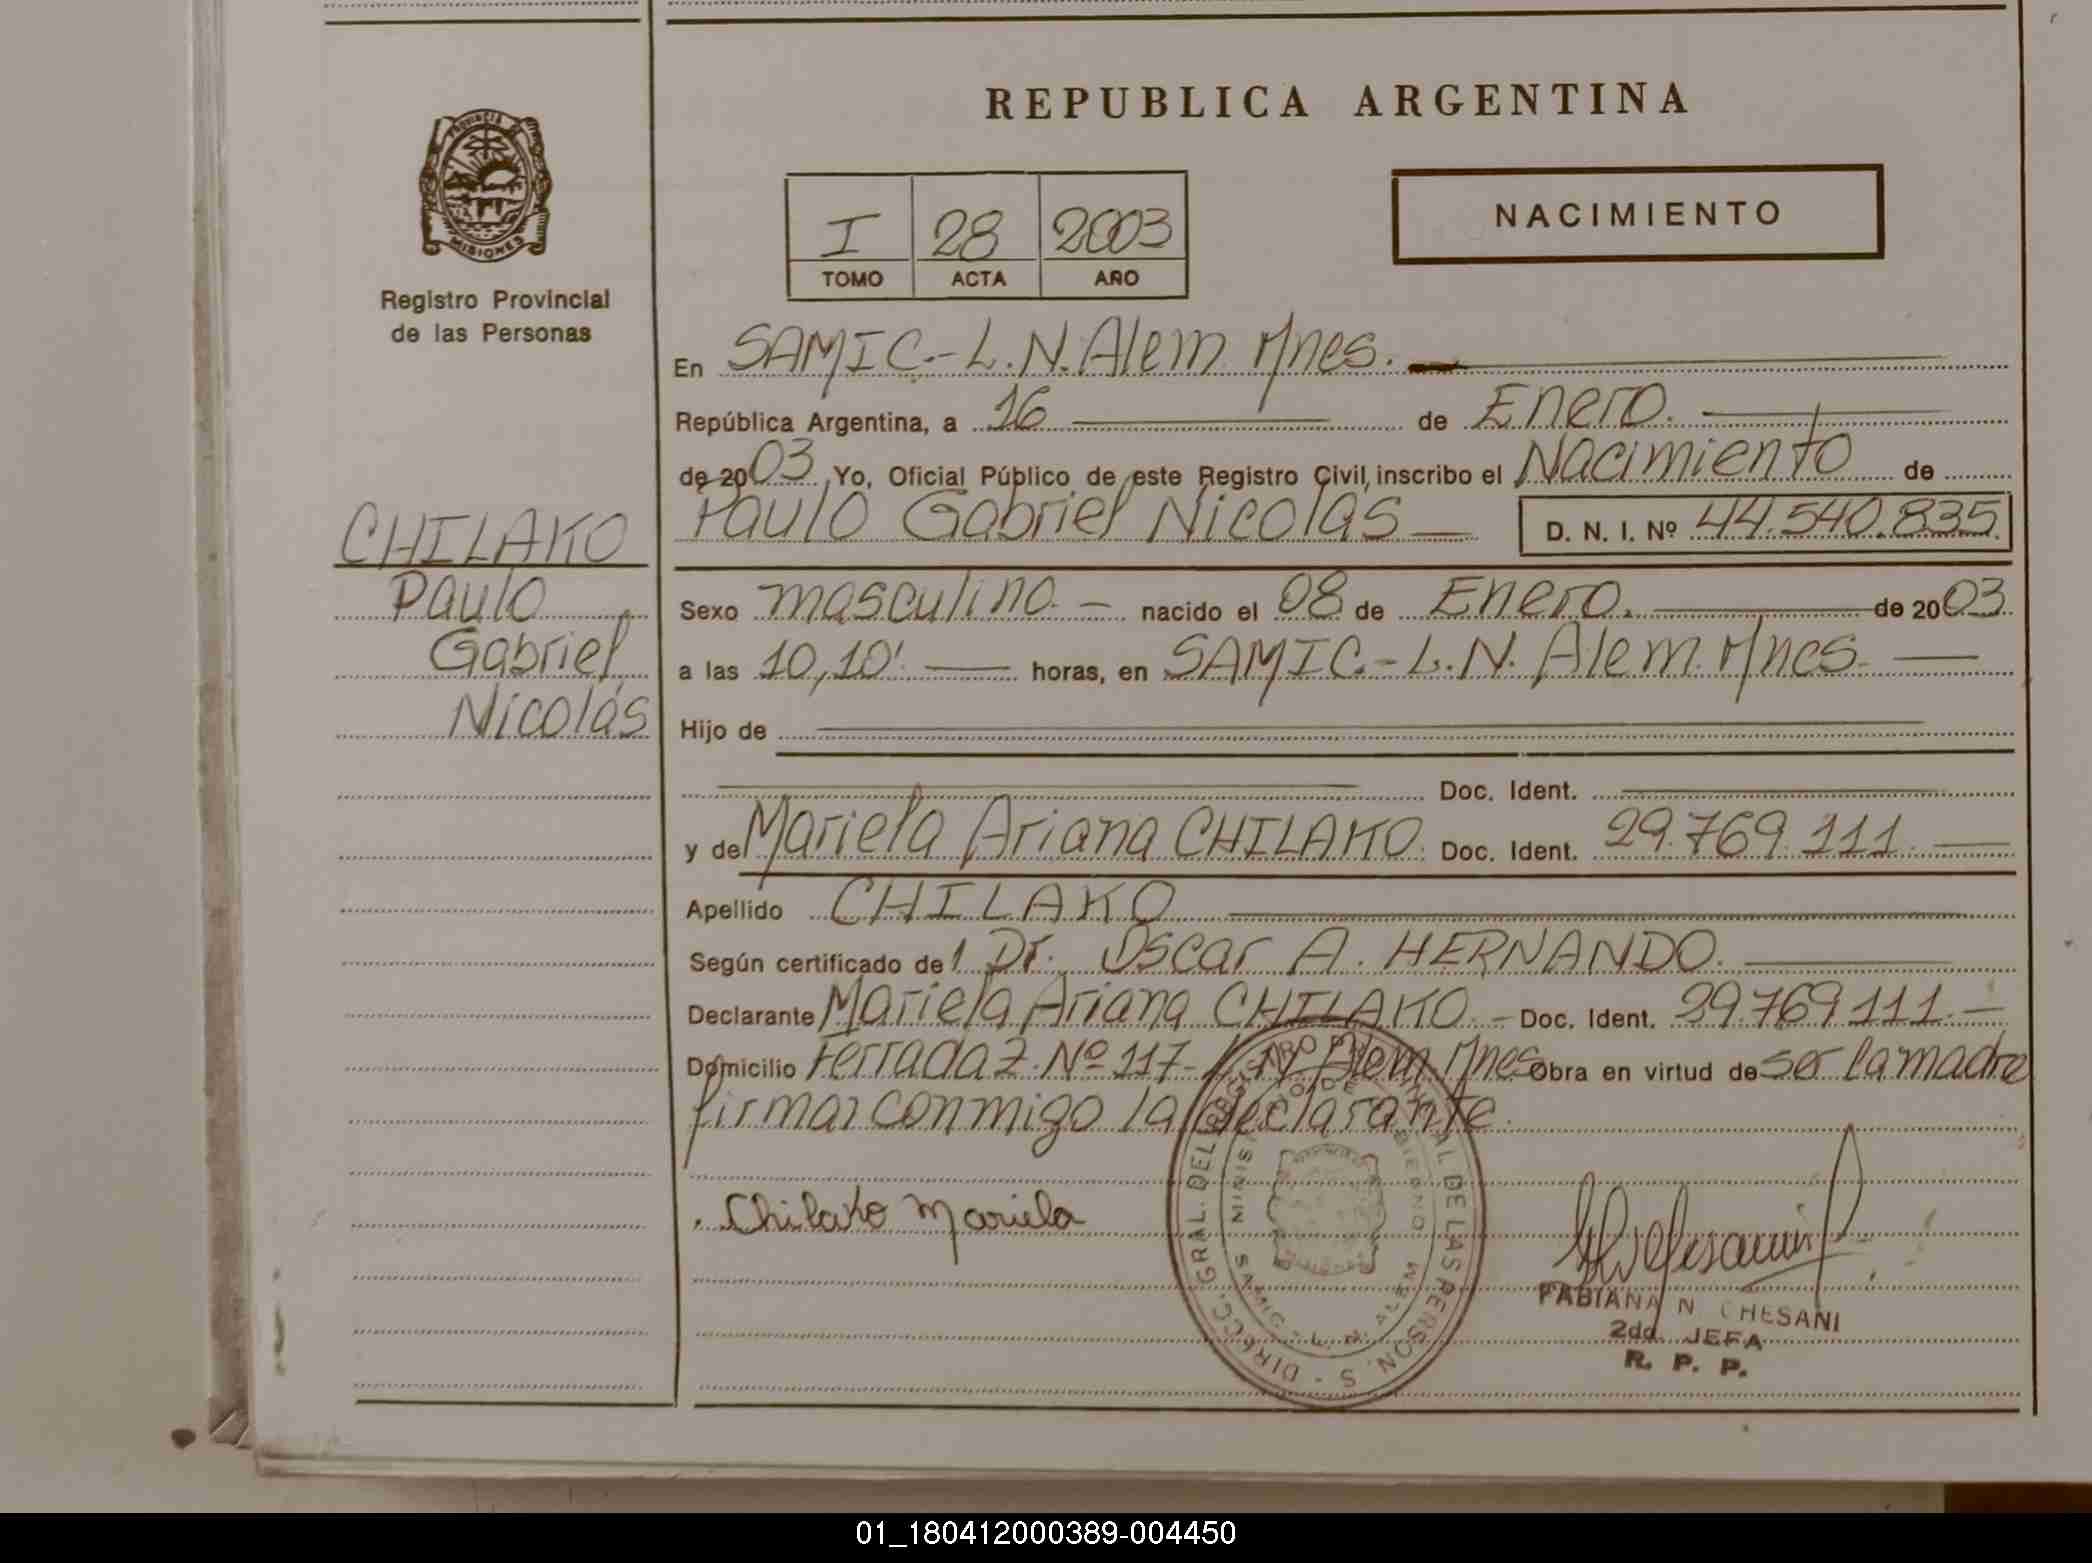 REPUBLICA ARGENTINA
PROVINCIA D
MISIONES
Registro Provincial
de las Personas
I 28 2003
TOMO ACTA AÑO
NACIMIENTO
En SAMIC.-L.N.Alem Mnes.
República Argentina, a 16 de Enero.
de 2003 Yo, Oficial Público de este Registro Civil, inscribo el Nacimiento de
Paulo Gabriel Nicolás D. N. I. Nº 44.540.835
CHILAKO
Paulo
Gabriel
Nicolás
Sexo masculino.- nacido el 08 de Enero. de 2003
a las 10,10'. horas, en SAMIC.-L.N. Alem. Mnes.
Hijo de
Doc. Ident.
y de Mariela Ariana CHILAKO. Doc. Ident. 29.769.111.
Apellido CHILAKO
Según certificado del Dr. Oscar A. HERNANDO.
Declarante Mariela Ariana CHILAKO.- Doc. Ident. 29.769.111.-
Domicilio Nº 117- L.N. Alem Mnes Obra en virtud de ser la madre
firmar conmigo la declarante.
Chilako Mariela
DIRECC. GRAL. DEL REGISTRO PROVINCIAL DE LAS PERSON. S -
SAMIC - L. N. ALEM
FABIANA N CHESANI
2da. JEFA
R. P. P.
01_180412000389-004450